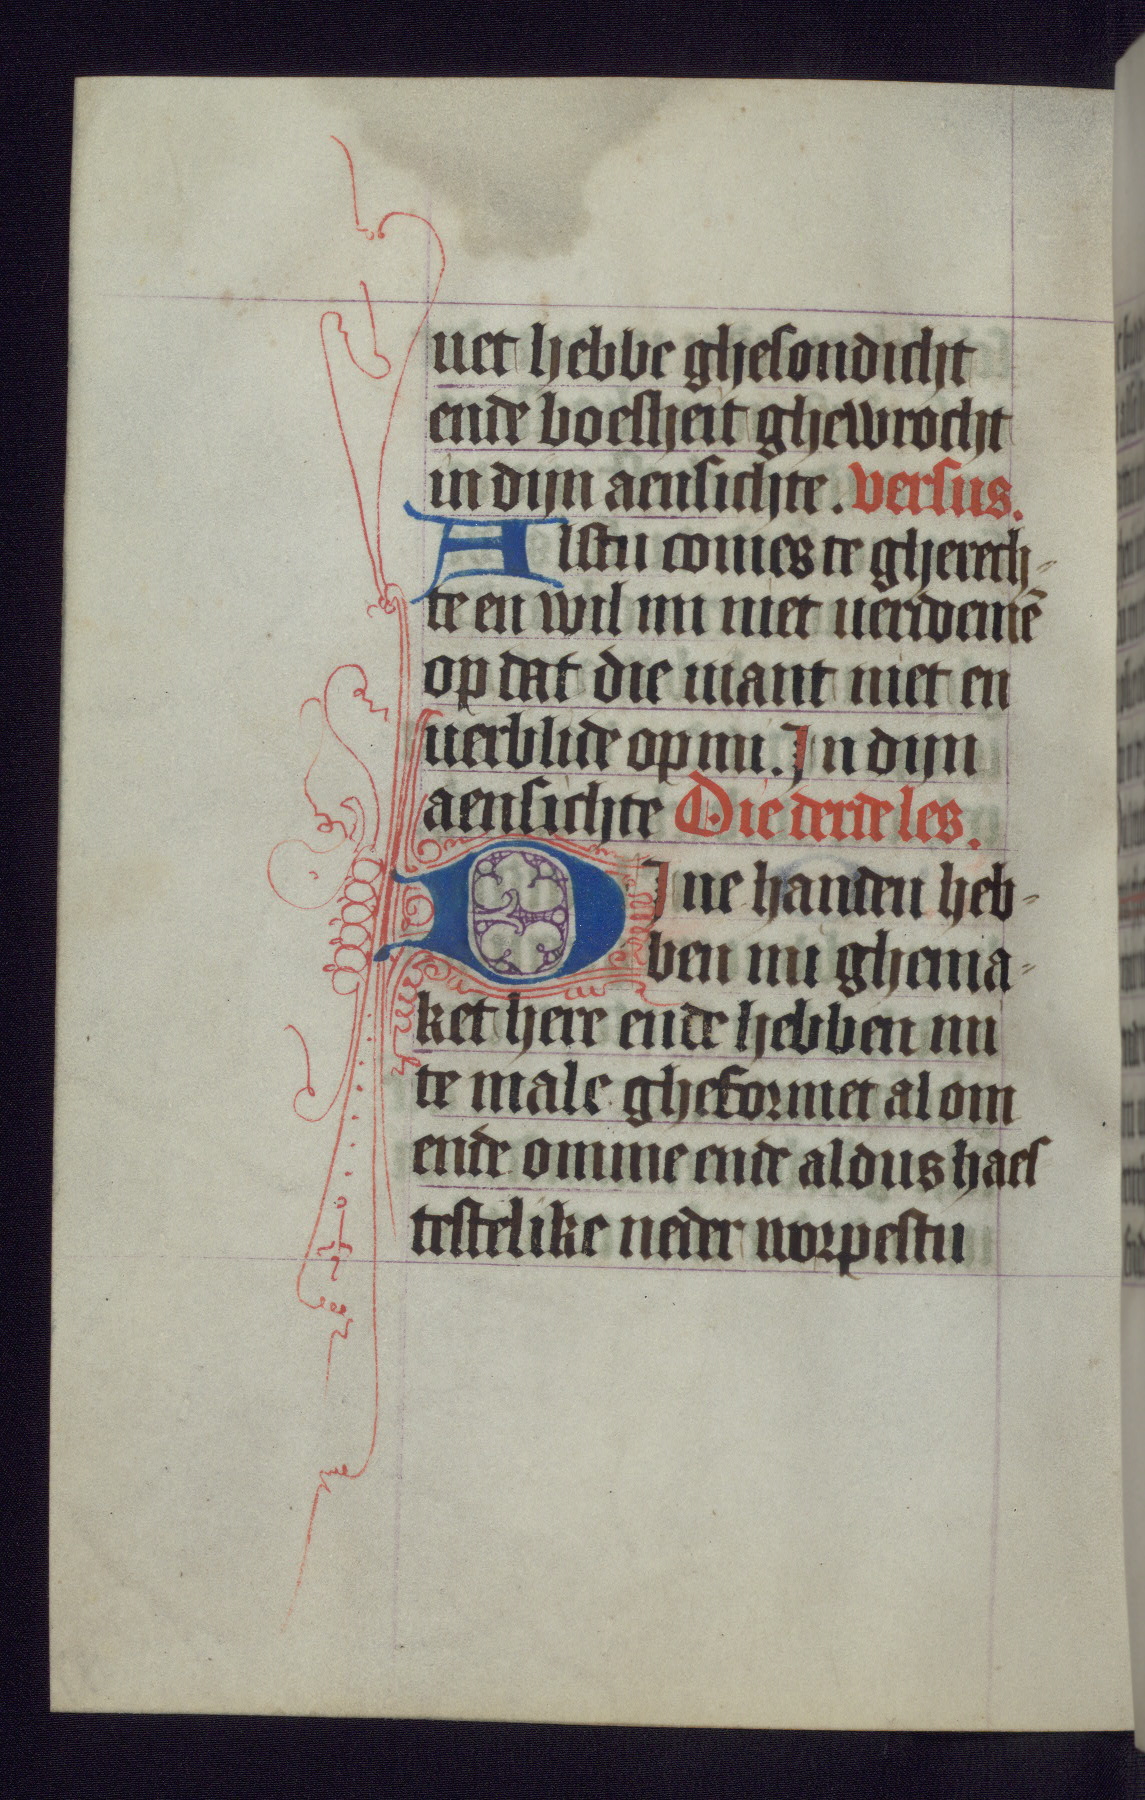 uet hebbe ghesondicht
ende boesheit ghewrocht
in dijn aensichte. versus.
Alstu comes te gherech-
te en wil mi niet uerdoemē
op dat die uiant niet en
uerblide op mi. In dijn
aensichte Die derde les.
DIne handen heb-
ben mi ghema-
ket here ende hebben mi
te male gheformet al om
ende omme ende aldus haes
testelike neder worpestu